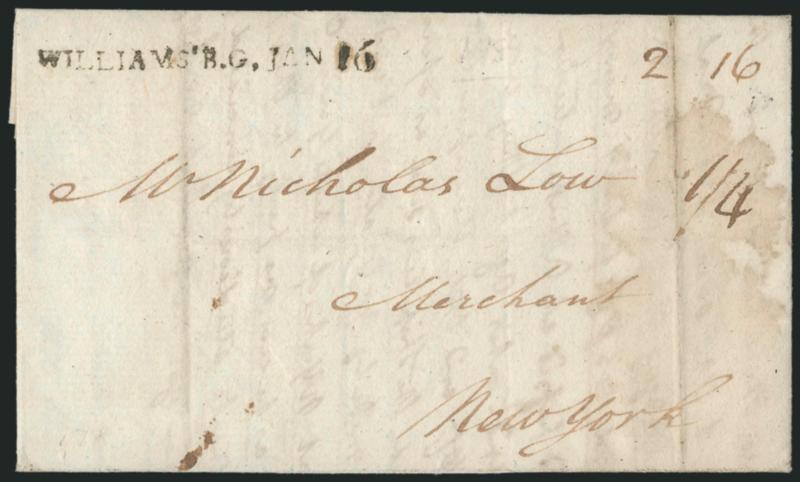 WILLIAMS'B.G, JAN 16
2 16
Mr Nicholas Low 1/4
Merchant
New York